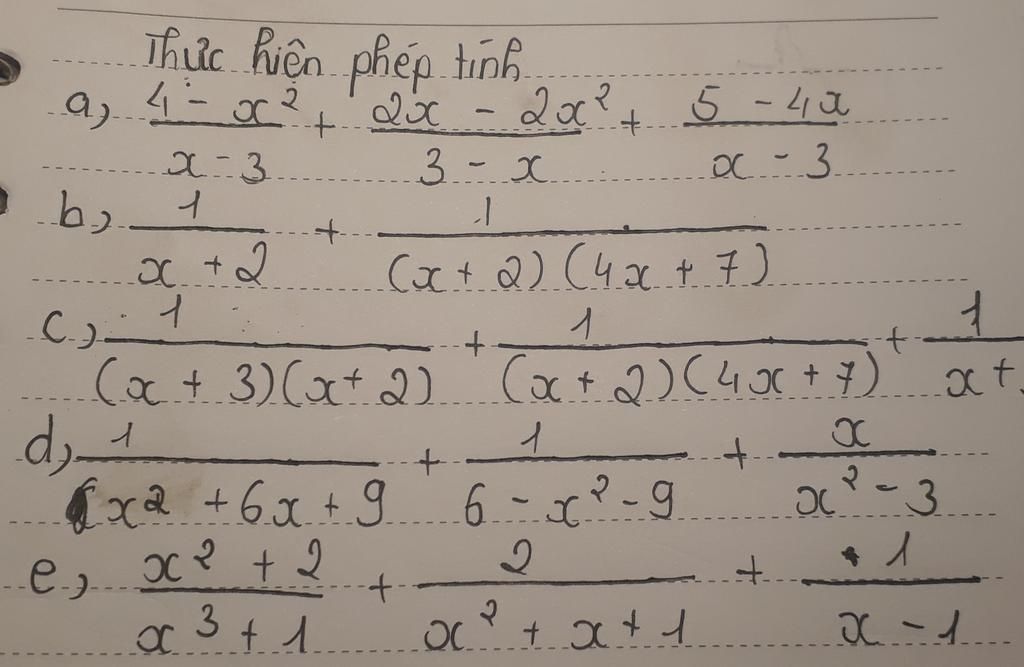 Thực hiện phép tính
a, \frac{4 - x^2}{x - 3} + \frac{2x - 2x^2}{3 - x} + \frac{5 - 4x}{x - 3}
b, \frac{1}{x + 2} + \frac{1}{(x + 2)(4x + 7)}
c, \frac{1}{(x + 3)(x + 2)} + \frac{1}{(x + 2)(4x + 7)} + \frac{1}{x +}
d, \frac{1}{x^2 + 6x + 9} + \frac{1}{6 - x^2 - 9} + \frac{x}{x^2 - 3}
e, \frac{x^2 + 2}{x^3 + 1} + \frac{2}{x^2 + x + 1} + \frac{1}{x - 1}